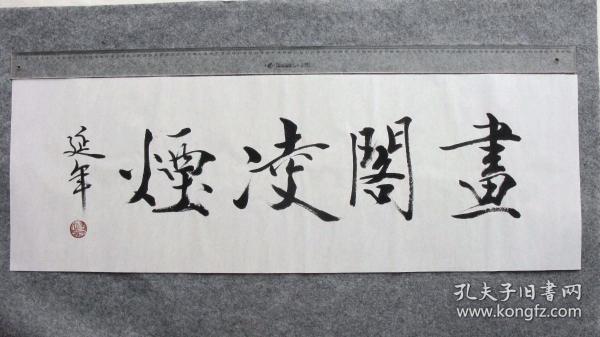 畫閣凌煙
延年
孔夫子旧書网
www.kongfz.com